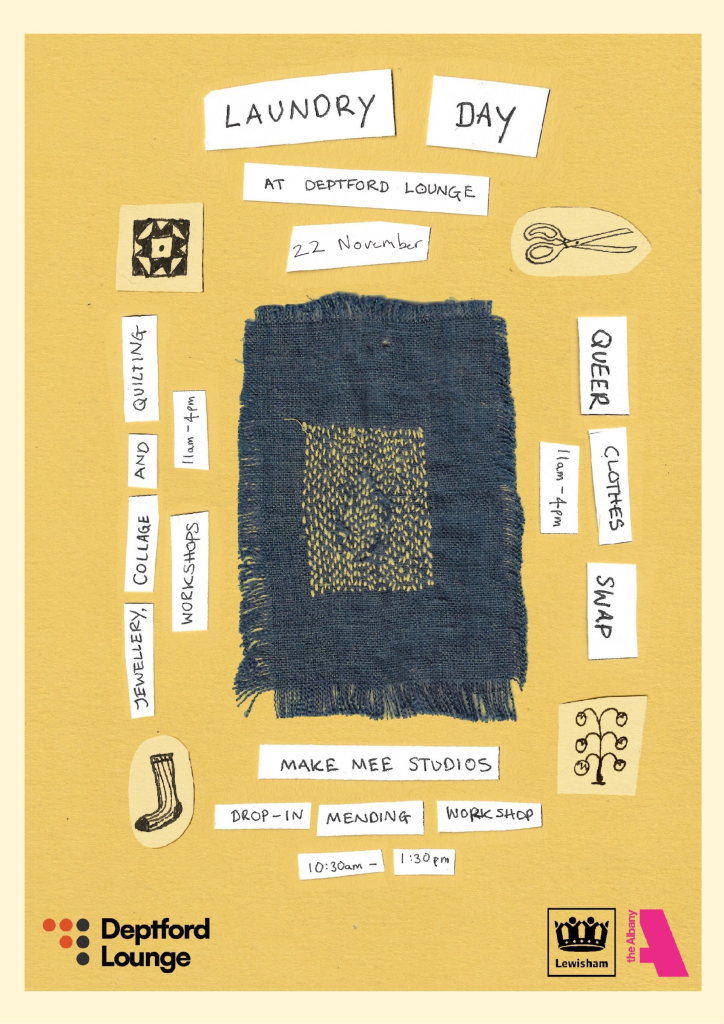 LAUNDRY DAY
AT DEPTFORD LOUNGE
22 November
JEWELLERY, COLLAGE AND QUILTING
WORKSHOPS 11am-4pm
QUEER CLOTHES SWAP
11am-4pm
MAKE MEE STUDIOS
DROP-IN MENDING WORKSHOP
10:30am - 1:30pm
Deptford
Lounge
Lewisham
the Albany